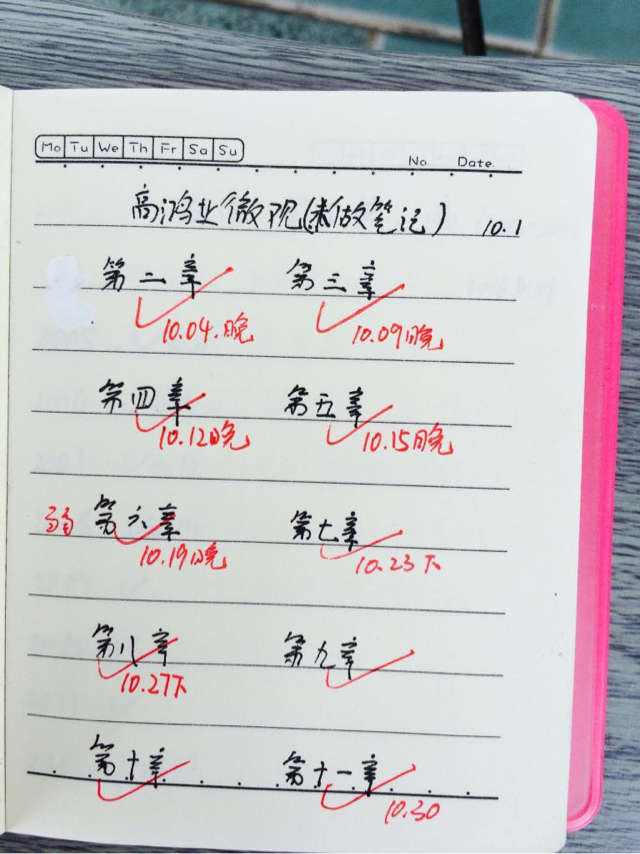 Mo Tu We Th Fr Sa Su
No. Date.
高鸿业微观(未做笔记) 10.1
第二章 第三章
10.04.晚 10.09晚
第四章 第五章
10.12晚 10.15晚
弱 第六章 第七章
10.19晚 10.23下
第八章 第九章
10.27下
第十章 第十一章
10.30